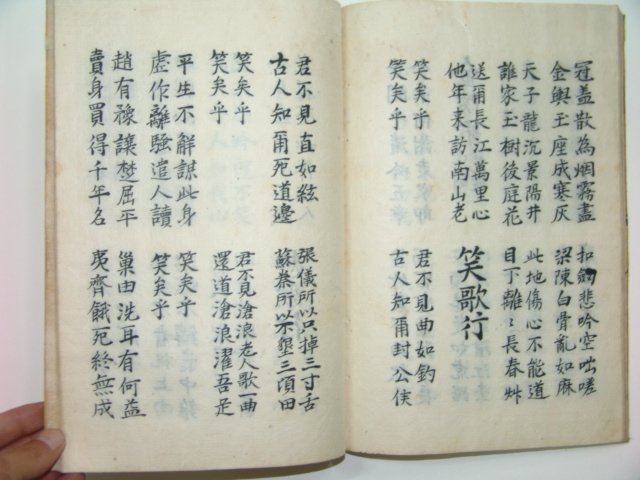 冠盖散為烟霧盡
金輿玉座成寒灰
扣劔悲吟空咄嗟
梁陳白骨亂如麻
天子龍沉景陽井
誰家玉樹後庭花
此地傷心不能道
目下離〻長春艸
送爾長江萬里心
他年来訪南山老
笑歌行
笑矣乎
笑矣乎
君不見曲如釣
古人知爾封公侯
君不見直如絃
古人知爾死道邊
張儀所以只掉三寸舌
蘇秦所以不墾三頃田
笑矣乎
笑矣乎
君不見滄浪老人歌一曲
還道滄浪濯吾足
平生不解謀此身
虛作離騷遣人讀
笑矣乎
笑矣乎
趙有豫讓楚屈平
賣身買得千年名
巢由洗耳有何益
夷齊餓死終無成